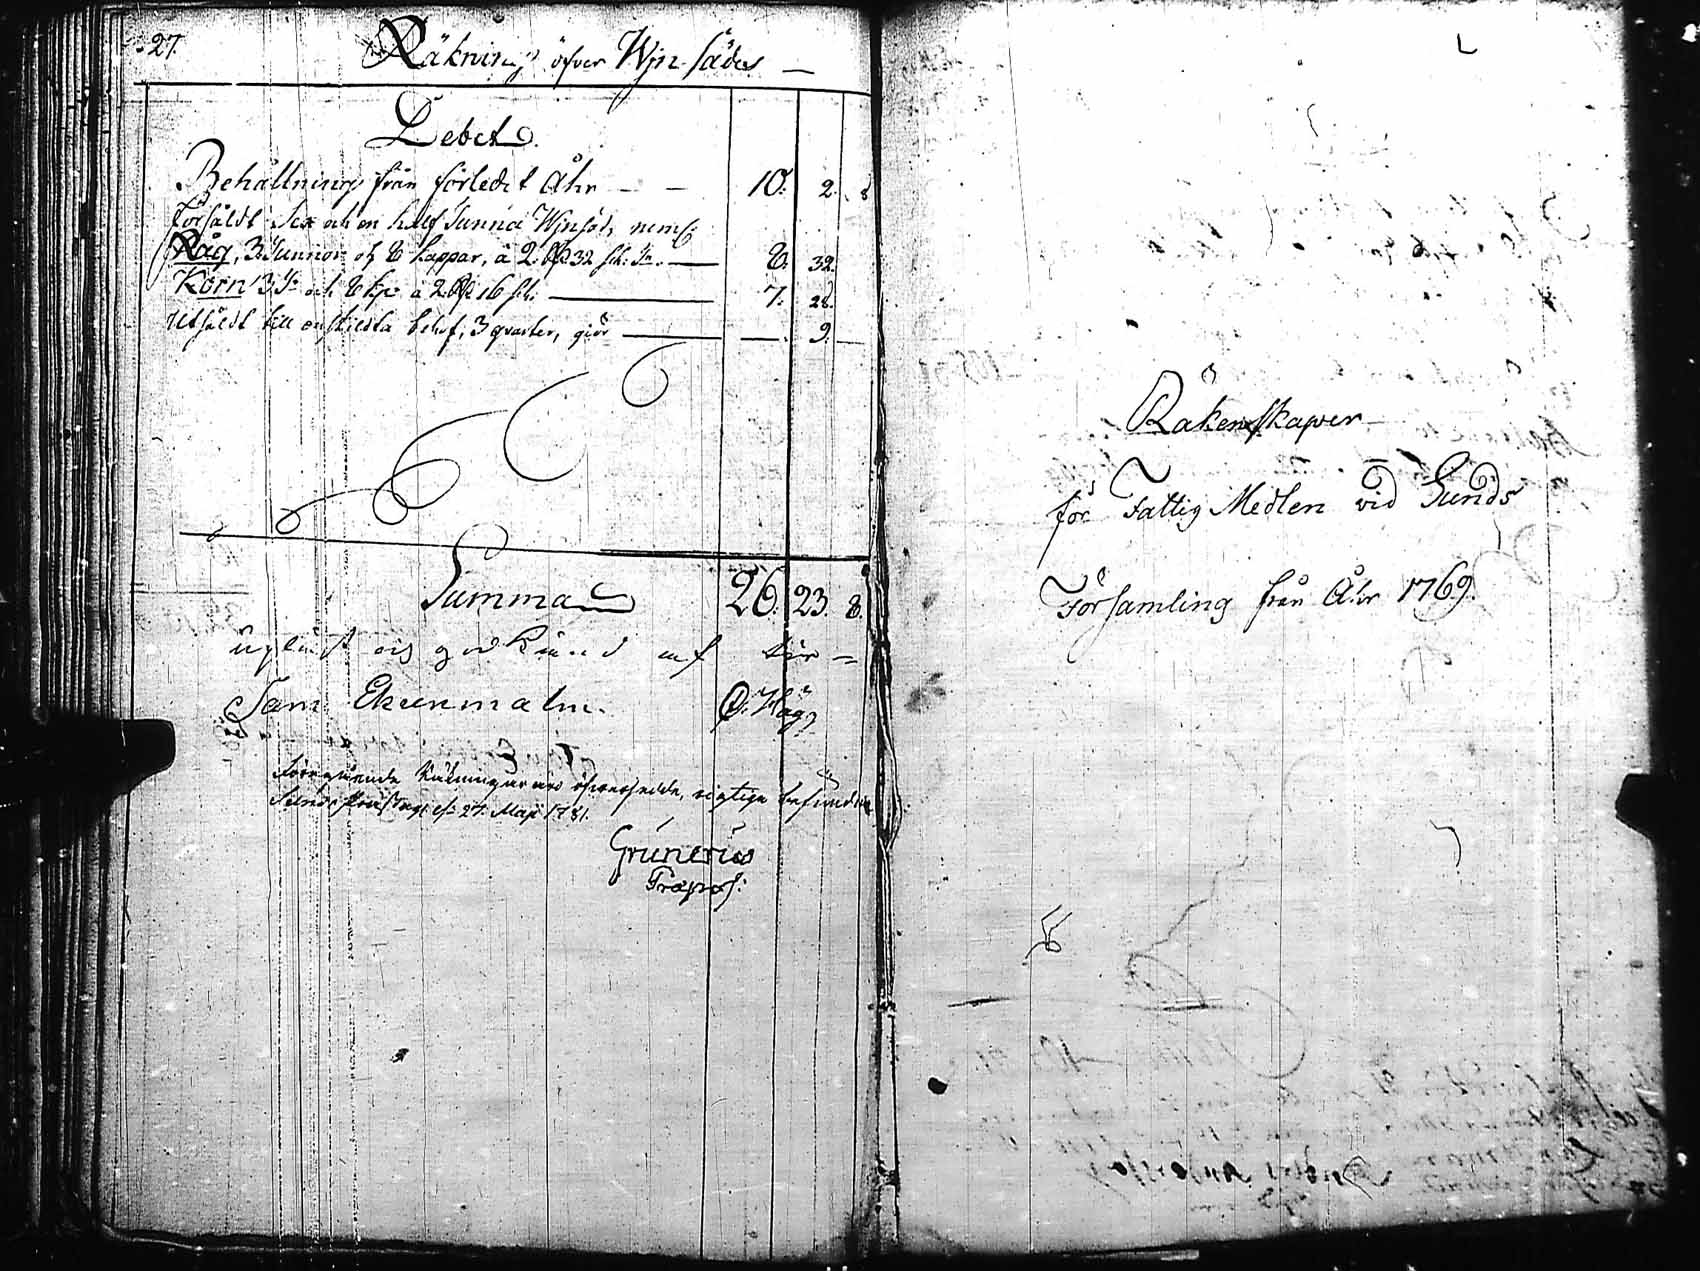 27.
Räkning öfver Wijn-Sädes
Debet.
Behållning från förledit Åhr — — 10. 2. 8
Försåldt Sex och en half Tunna Wijnsäd, neml:
Råg, 3 Tunnor och 8 kappar, à 2. 32 sk: Tn. — 8. 32.
Korn 3 Tr och 8 kpr à 2 16 sk. — 7. 28.
Utsåldt till enskildta behof, 3 qvarter, giör — — 9. —
Summa 26. 23. 8.
uplöst och godkiänd af
Sam Ekenmalm. O. Hägg
Föregående Räkningar äro öfversedde, rigtige befundne
Sunds Prostag: d: 27. Maji 1781.
Grunerus
Præpos:
Räkenskaper
för Fattig Medlen vid Sunds
Församling från Åhr 1769.